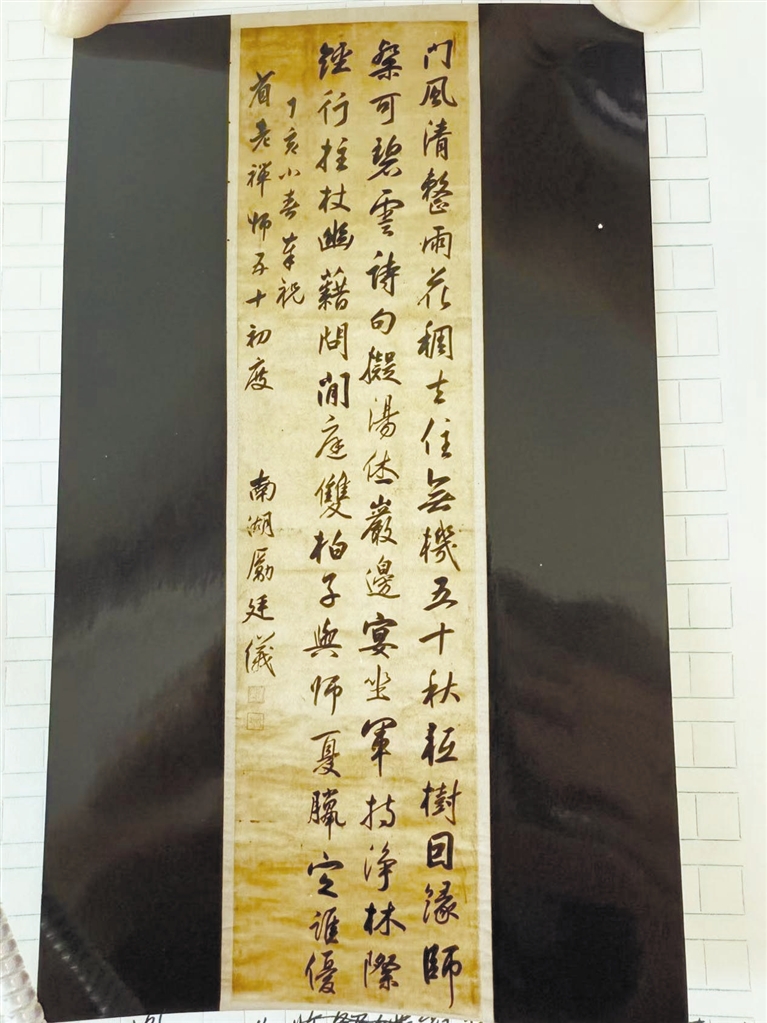 門風清整雨花稠去住無機五十秋祇樹因緣師
粲可碧雲詩句擬湯休巖邊宴坐軍持淨林際
經行拄杖幽藉問閒庭雙柏子與師夏臘定誰優
丁亥小春奉祝
省老禪師五十初度 南湖勵廷儀